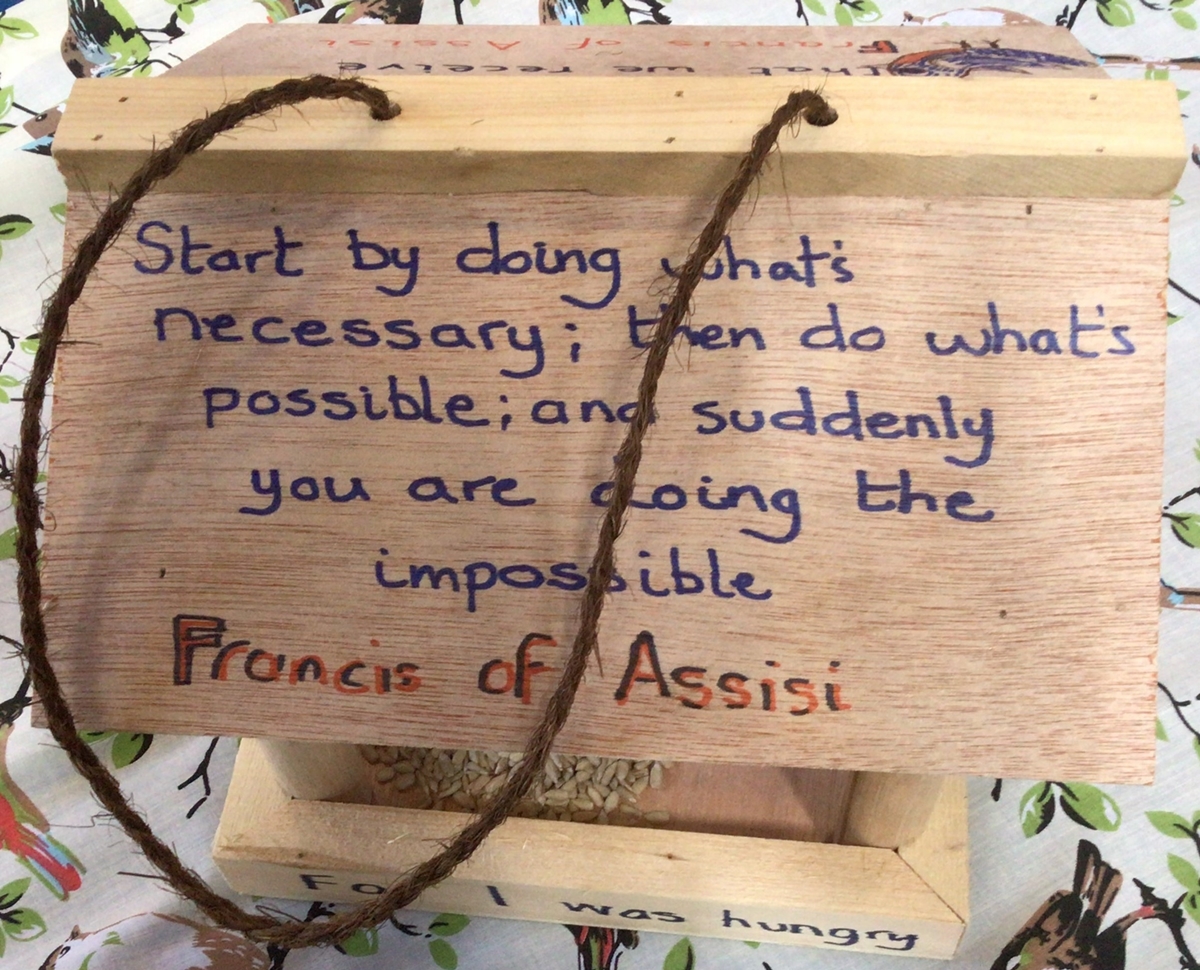 that we receive
Francis of Assisi
Start by doing what's
necessary; then do what's
possible; and suddenly
you are doing the
impossible
Francis of Assisi
For I was hungry